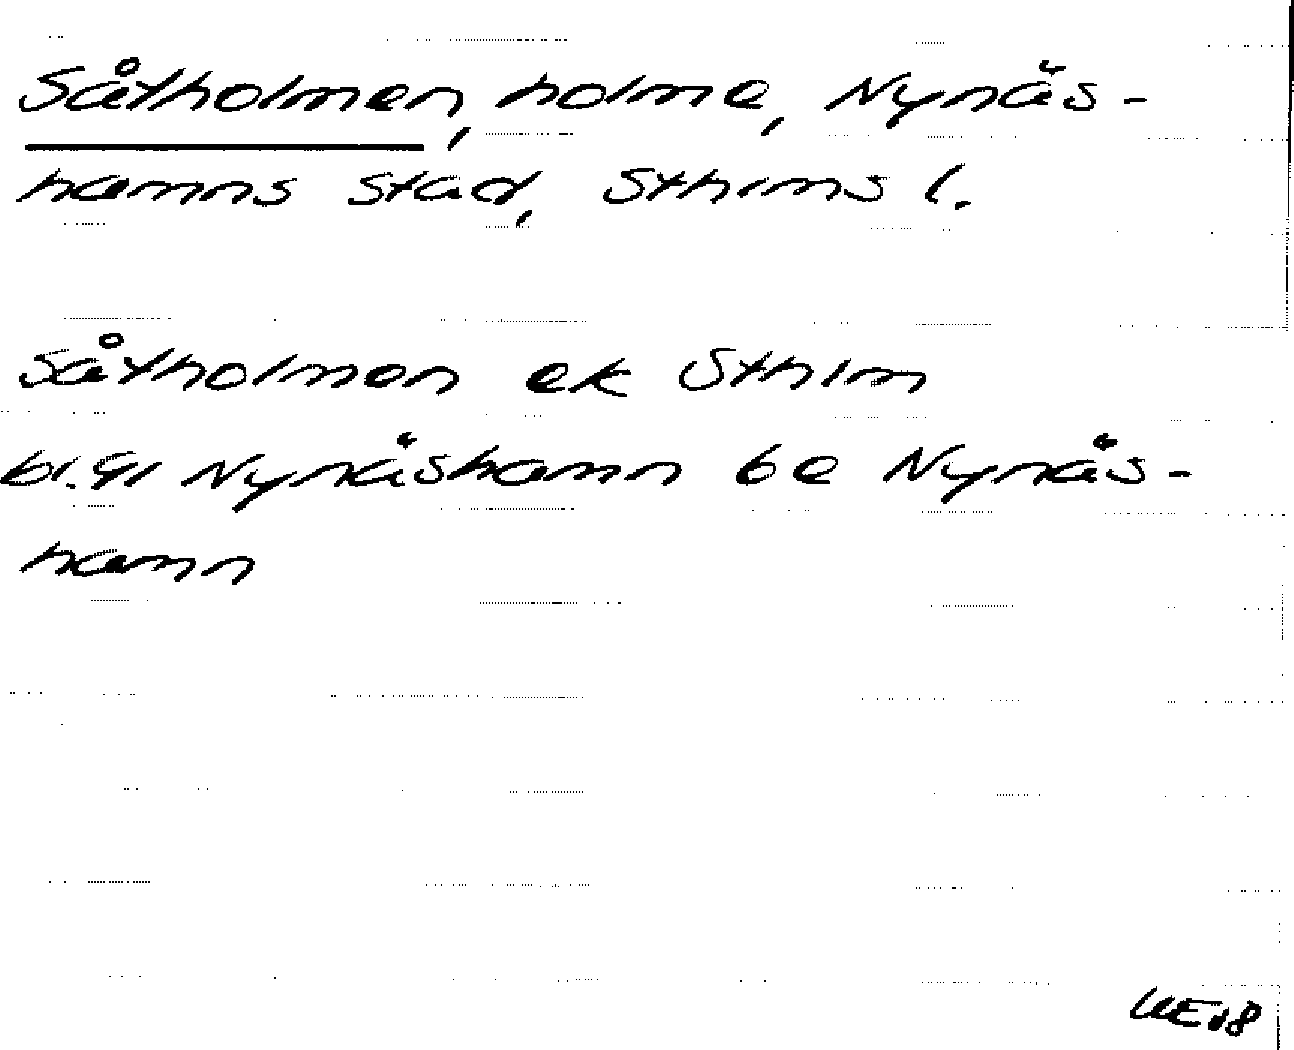 Såtholmen, holme, Nynäs-
hamns stad, Sthlms l.
Såtholmen ek Sthlm
bl. 91 Nynäshamn be Nynäs-
hamn